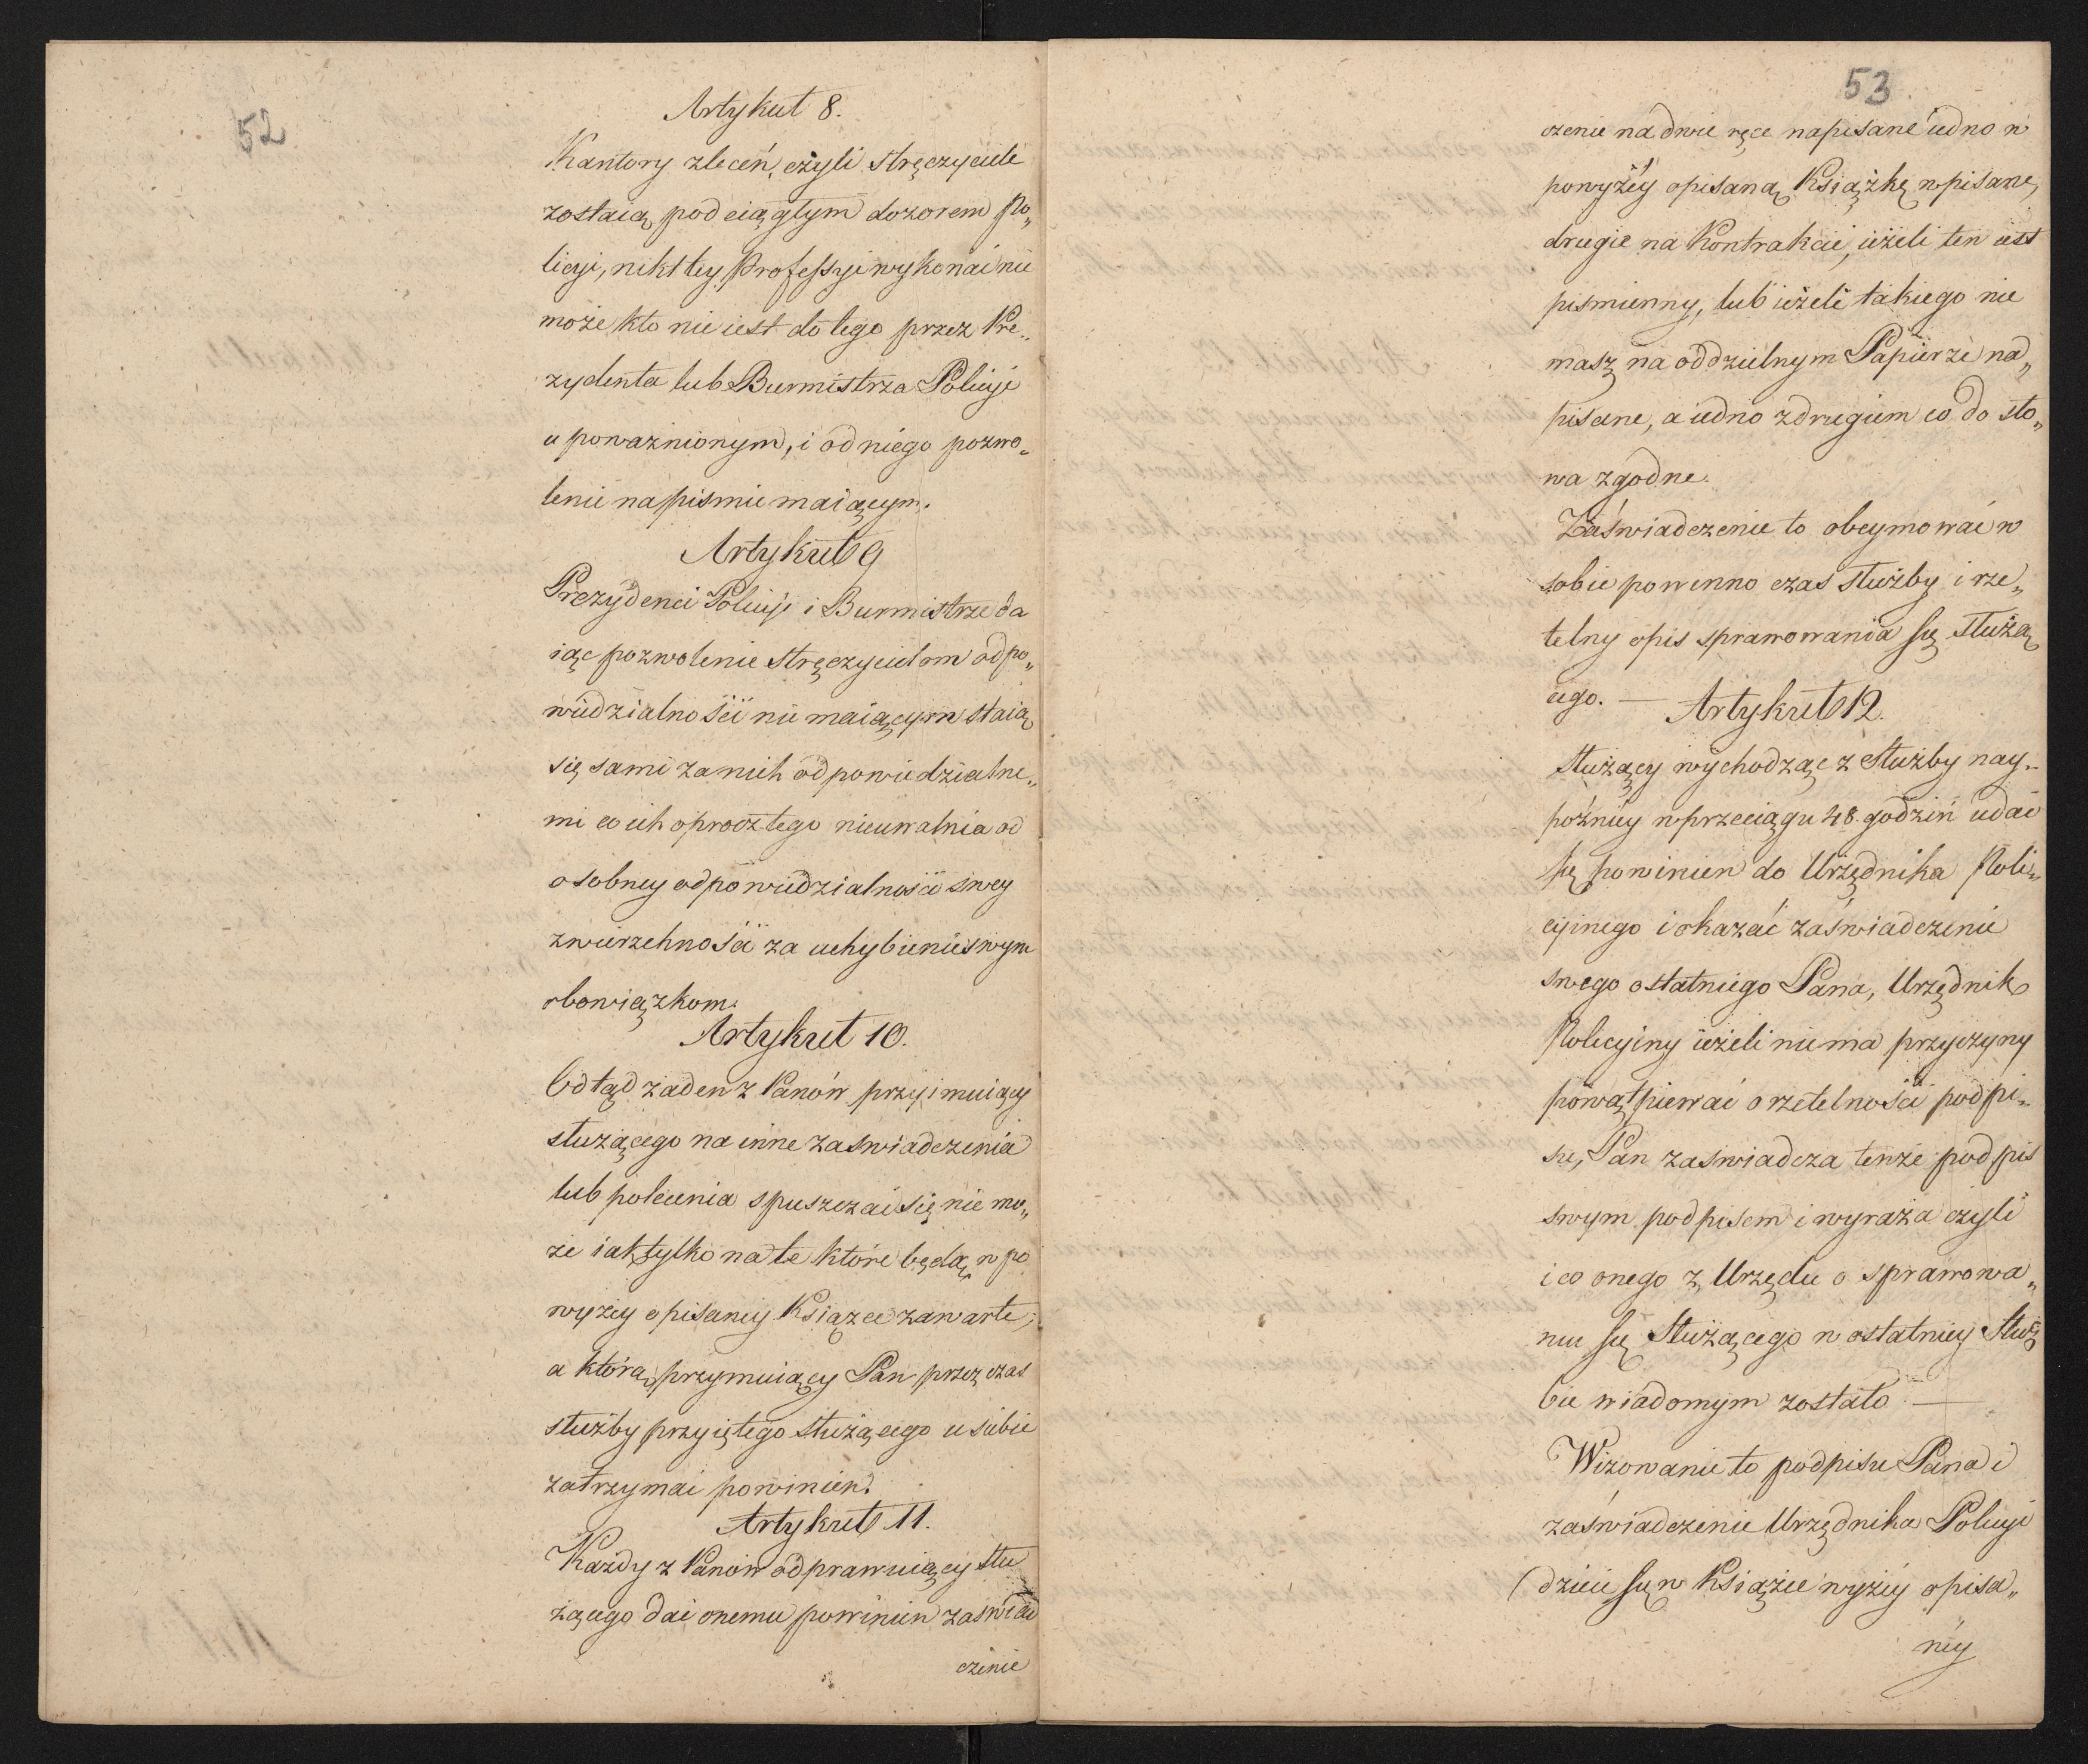 52
Artykuł 8.
Kantory zleceń, czyli stręczyciele
zostaią pod ciągłym dozorem Po„
licyi, nikt tey Professyi wykonać nie
może kto nie iest do tego przez Pre„
zydenta lub Burmistrza Policyi
upoważnionym, i od niego pozwo„
lenie na piśmie maiącym.
Artykuł 9
Prezydenci Policyi i Burmistrze da
iąc pozwolenie stręczycielom odpo„
wiedzialności nie maiącym staią
się sami za nich odpowiedzialne„
mi co ich oprócz tego nieuwalnia od
osobney odpowiedzialności swey
zwierzchności za uchybienie swym
obowiązkom.
Artykuł 10.
Odtąd żaden z Panów przyimuiący
służącego na inne zaświadczenia
lub polecenia spuszczać się nie mo„
że iak tylko na te które będą w po
wyżey opisaney Książce zawarte;
a którą przymuiący Pan przez czas
służby przyiętego służącego u siebie
zatrzymać powinien.
Artykuł 11.
Każdy z Panów odprawuiący słu
żącego dać onemu powinien zaświad
czenie
53
czenie na dwie ręce napisane iedno w
powyżey opisaną Książkę wpisane,
drugie na Kontrakcie, ieżeli ten iest
piśmienny, lub ieżeli takiego nie
masz na oddzielnym Papierze na„
pisane, a iedno z drugiem co do sło„
wa zgodne.
Zaświadczenie to obeymować w
sobie powinno czas służby i rze„
telny opis sprawowania się służą
cego. — Artykuł 12.
Służący wychodząc z Służby nay„
póżniey w przeciągu 48. godzin udać
się powinien do Urzędnika Poli„
cyinego i okazać zaświadczenie
swego ostatniego Pana, Urzędnik
Policyiny ieżeli nie ma przyczyny
powątpiewać o rzetelności podpi„
su, Pan zaświadcza tenże podpis
swym podpisem i wyraża czyli
i co onego z Urzędu o sprawowa„
niu się Służącego w ostatniey Służ
bie wiadomym zostało —
Wizowanie to podpisu Pana i
zaświadczenie Urzędnika Policyi
dzieie się w Książce wyżey opisa„
ney